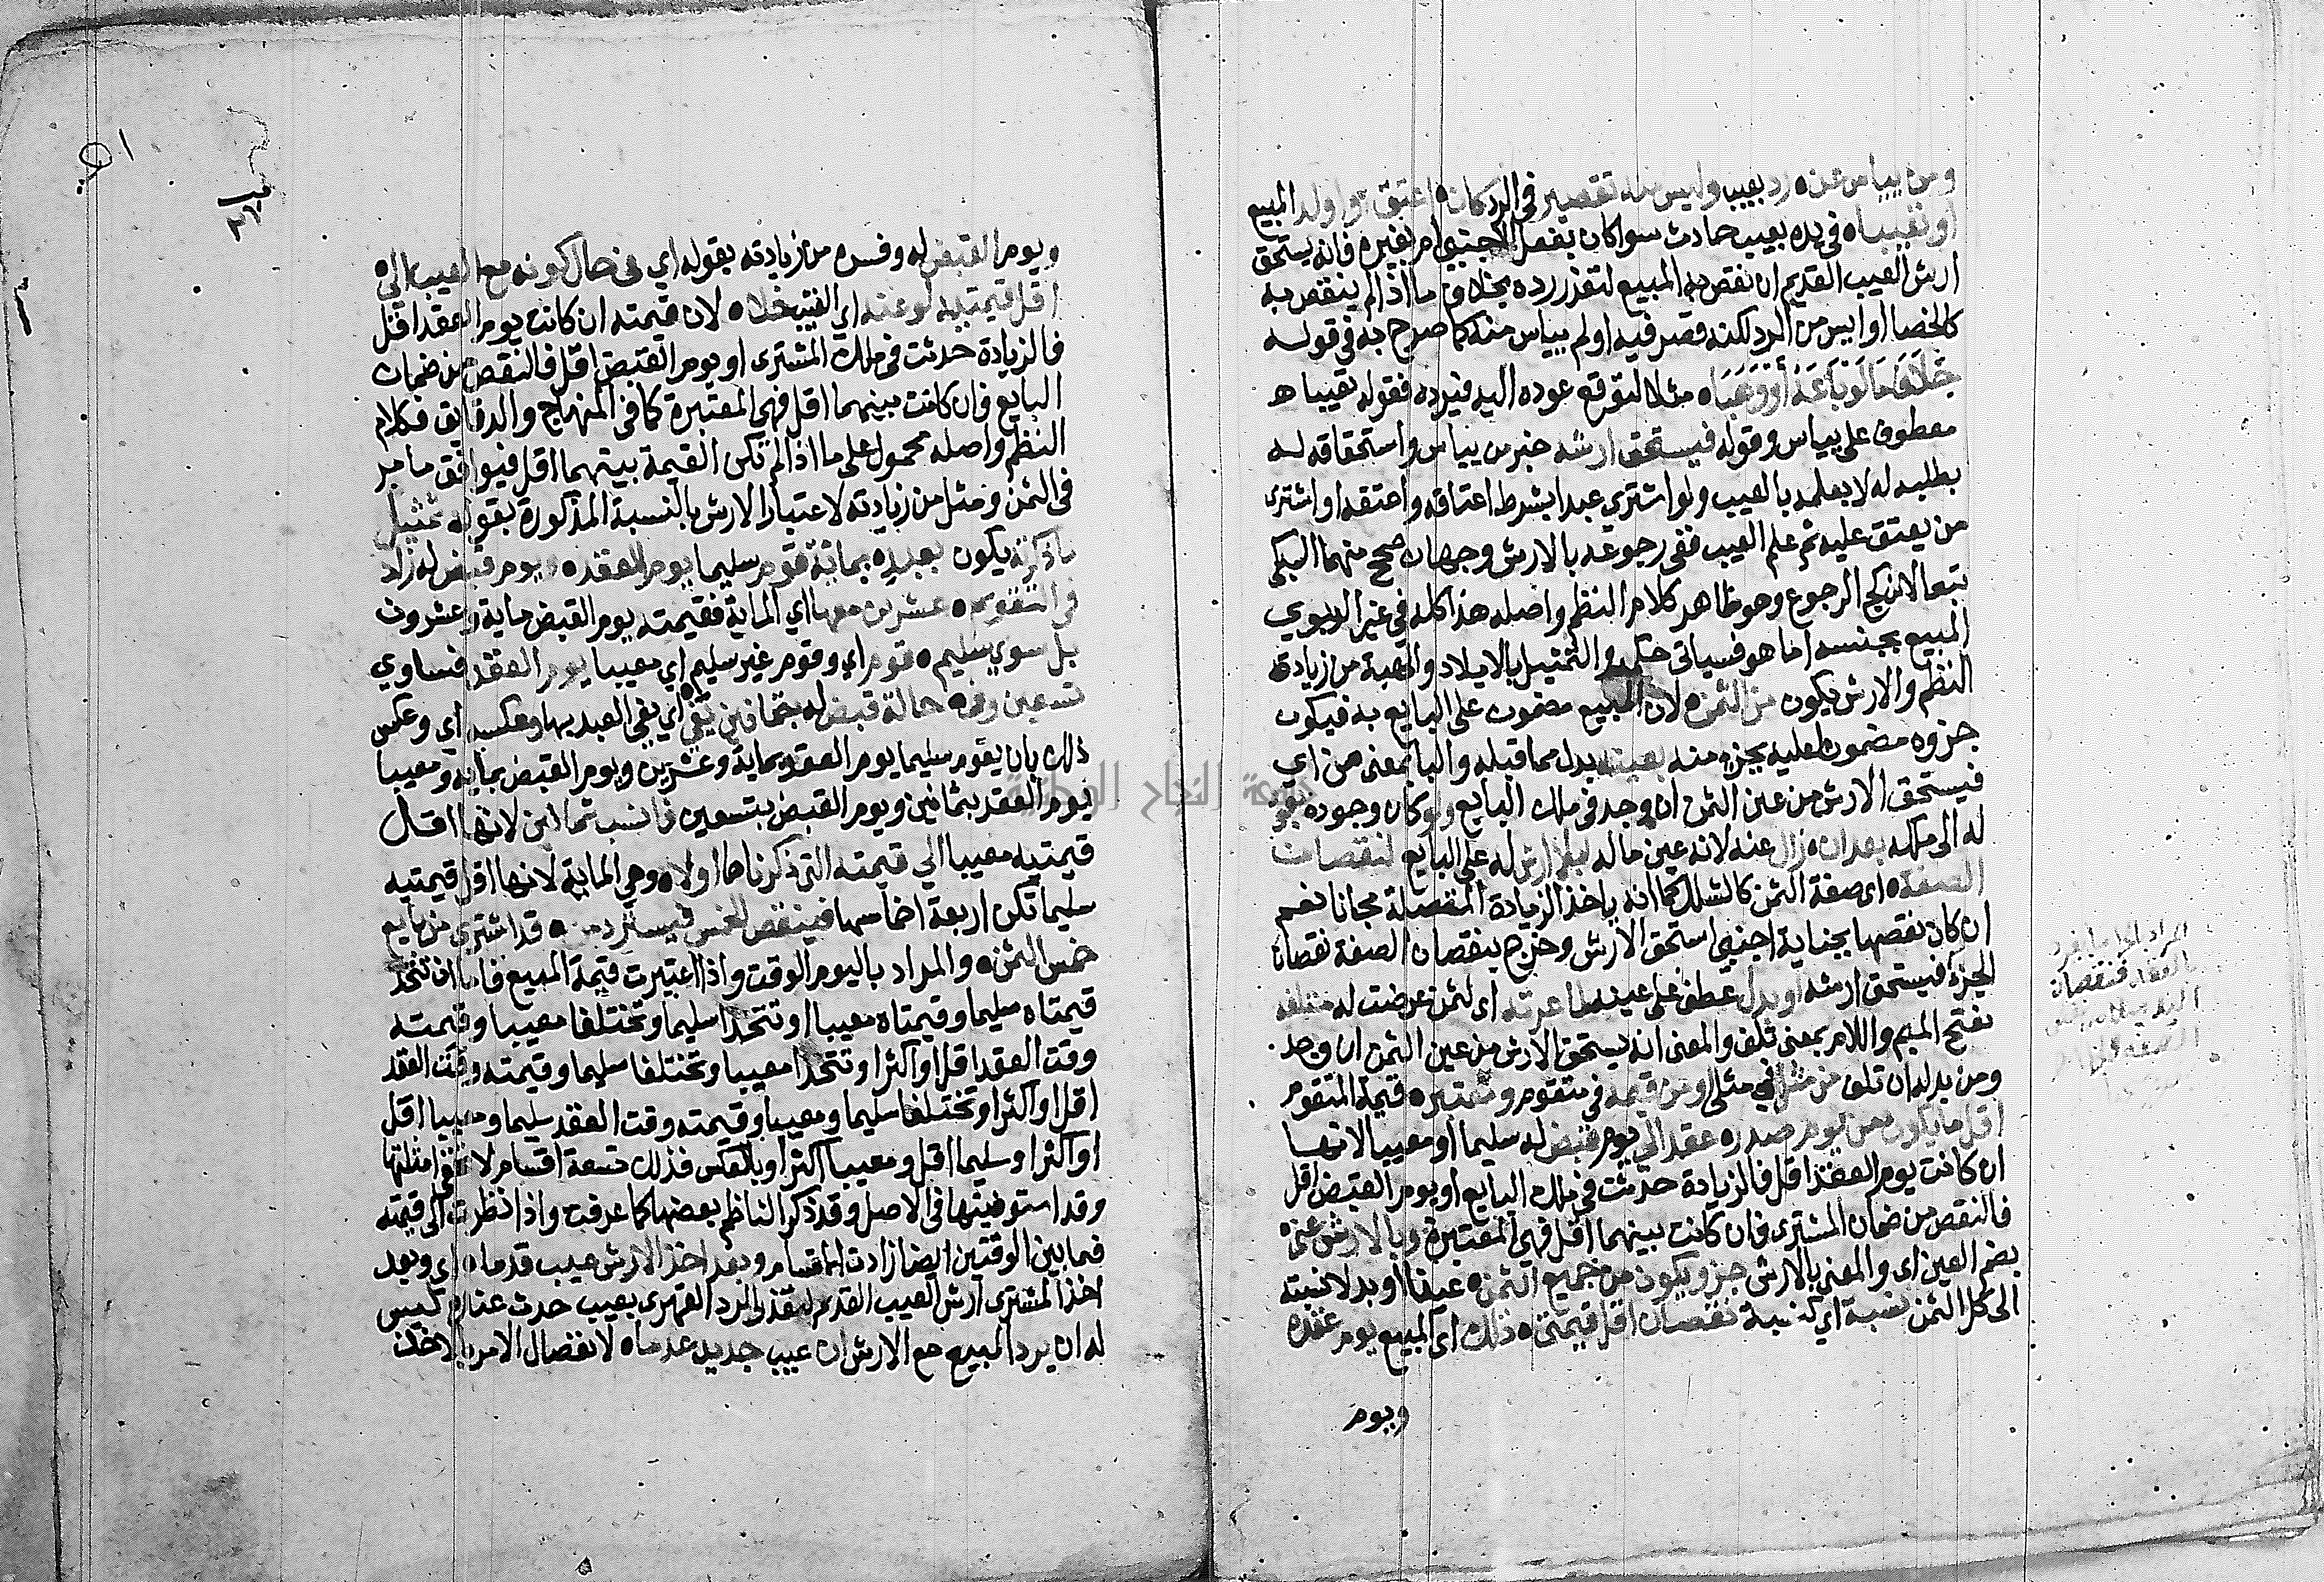 ومن ييأس من عن ه رد بعيب وليس منه تقصير في الرد كان ه اعتق او اولد المبيع
او تعيبا ه في يده بعيب حادث سوا كان بفعل الاجنبي ام بغيره فانه يستحق
ارش العيب القديم ان نقص به المبيع لتعذر رده بخلاف ما اذا لم ينقص به
كالخصا او ايس من الرد لكنه قصر فيه او لم ييأس منه كما صرح به في قوله
خلاف ما لو باعه أو وهبا ه مثلا لتوقع عوده اليه فيرده فقوله تعيبا ه
معطوف على ييأس وقوله فيستحق ارشه خبر من ييأس واستحقاقه له
بطلبه له لا بعلمه بالعيب ولو اشتري عبدا بشرط اعتاقه واعتقه او اشترى
من يعتق عليه ثم علم العيب ففي رجوعه بالارش وجهان صحح منهما السبكي
تبعا لابن كج الرجوع وهو ظاهر كلام النظم واصله هذا كله في غير الربوي
المبيع بجنسه اما هو فسياتي حكمه والتمثيل بالايلاد والهبة من زيادة
النظم والارش يكون من الثمن ه لان المبيع مضمون على البايع به فيكون
جزوه مضمون عليه بجزء منه بعينه بدل مما قبله والبا بمعنى من اي
فيستحق الارش من عين الثمن ان وجد في ملك البايع ولو كان وجوده بعو
له الى ملكه بعد ان ه زال عنه لانه عين ماله بلا ارش له على البايع لنقصان
الصفة ه اي صفة الثمن كالشلل كما انه ياخذ الزيادة المتصلة مجانا نعم
ان كان نقصها بجناية اجنبي استحق الارش وخرج بنقصان الصفة نقصان
الجزء فيستحق ارشه او بدل عطف على عينه ما عرته اي لثمن عرضت له متلفه
بفتح الميم واللام بمعنى تلف والمعنى انه يستحق الارش من عين الثمن ان وجد
ومن بدله ان تلف من مثل في مثلي ومن قيمة في متقوم ومعتبره قيمة المتقوم
اقل ما يكون من يوم صدر ه عقد الي يوم قبض له سليما او معيبا لانها
ان كانت يوم العقد اقل فالزيادة حدثت في ملك البايع او يوم القبض اقل
فالنقص من ضمان المشتري فان كانت بينهما اقل فهي المعتبرة وبالارش عني ه
بضم العين اي والمعني بالارش جزو يكون من جميع الثمن ه عينا او بدلا نسبته
الى كل الثمن نسبة اي كنسبة نقصان اقل قيمتي ه ذلك اي المبيع يوم عقده
ويوم
المراد
بالعقد فنقصان
ويوم القبض له وفسره من زيادته بقوله اي في حال كونه مع العيب الي ه
اقل قيمتيه لو عنه اي العيب خلا ه لان قيمته ان كانت يوم العقد اقل
فالزيادة حدثت في ملك المشتري او يوم القبض اقل فالنقص من ضمان
البايع وان كانت بينهما اقل فهي المعتبرة كما في المنهاج والدقايق فكلام
النظم واصله محمول على ما اذا لم تكن القيمة بينهما اقل فيوافق ما مر
في الثمن ومثل من زيادته لاعتبار الارش بالنسبة المذكورة بقوله تمثيل
ما ذكرته يكون بعبد ه بماية قوم سليما يوم العقد ه ويوم قبض له زاد
في التقويم ه عشرين معها اي الماية فقيمته يوم القبض ماية وعشرون
بل سوي سليم ه قوم اي وقوم غير سليم اي معيبا يوم العقد فساوي
تسعين وفي ه حالة قبض له بثمانين يفي اي يفي العبد بها وعكسه اي وعكس
ذلك بان يقوم سليما يوم العقد بماية وعشرين ويوم القبض بماية ومعيبا
يوم العقد بثمانين ويوم القبض بتسعين فانسب ثمانين لانها اقل
قيمتيه معيبا الي قيمته التي ذكرناها اولا ه وهي الماية لانها اقل قيمتيه
سليما تكن اربعة اخماسها فينقص الخمس فيسترد من ه قد اشتري من بايع
خمس الثمن ه والمراد باليوم الوقت واذا اعتبرت قيمة المبيع فاما ان تتحد
قيمتاه سليما وقيمتاه معيبا او تتحدا سليما وتختلفا معيبا وقيمته
وقت العقد اقل او اكثر او تتحدا معيبا وتختلفا سليما وقيمته وقت العقد
اقل او اكثر او تختلفا سليما ومعيبا وقيمته وقت العقد سليما ومعيبا اقل
او اكثر او سليما اقل ومعيبا اكثر او بالعكس فذلك تسعة اقسام لا تخفى امثلتها
وقد استوفيتها في الاصل وقد ذكر الناظم بعضها كما عرفت واذا نظرت الى قيمته
فيما بين الوقتين ايضا زادت الاقسام وبعد اخذ الارش عيب قدما ه اي وبعد
اخذ المشتري ارش العيب القديم لتعذر الرد القهري بعيب حدث عنده ليس
له ان يرد المبيع مع الارش ان عيب جديد عدما ه لانفصال الامر بالاخذ